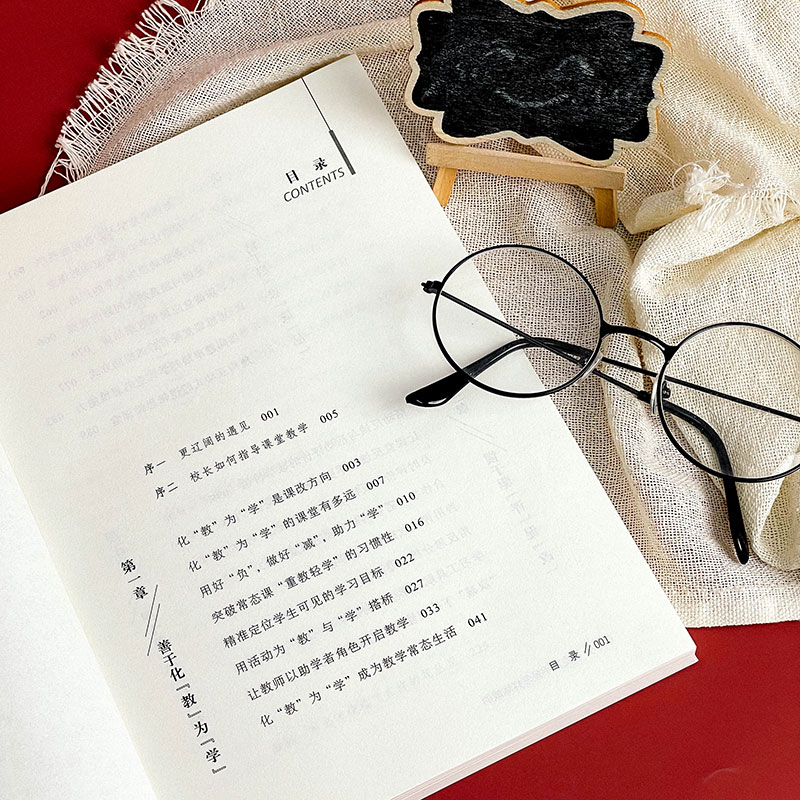 目 录
CONTENTS
序一 更辽阔的遇见 001
序二 校长如何指导课堂教学 005
第一章 // 善于化『教』为『学』
化“教”为“学”是课改方向 003
化“教”为“学”的课堂有多远 007
用好“负”，做好“减”，助力“学” 010
突破常态课“重教轻学”的习惯性 016
精准定位学生可见的学习目标 022
用活动为“教”与“学”搭桥 027
让教师以助学者角色开启教学 033
化“教”为“学”成为教学常态生活 041
目 录 // 001